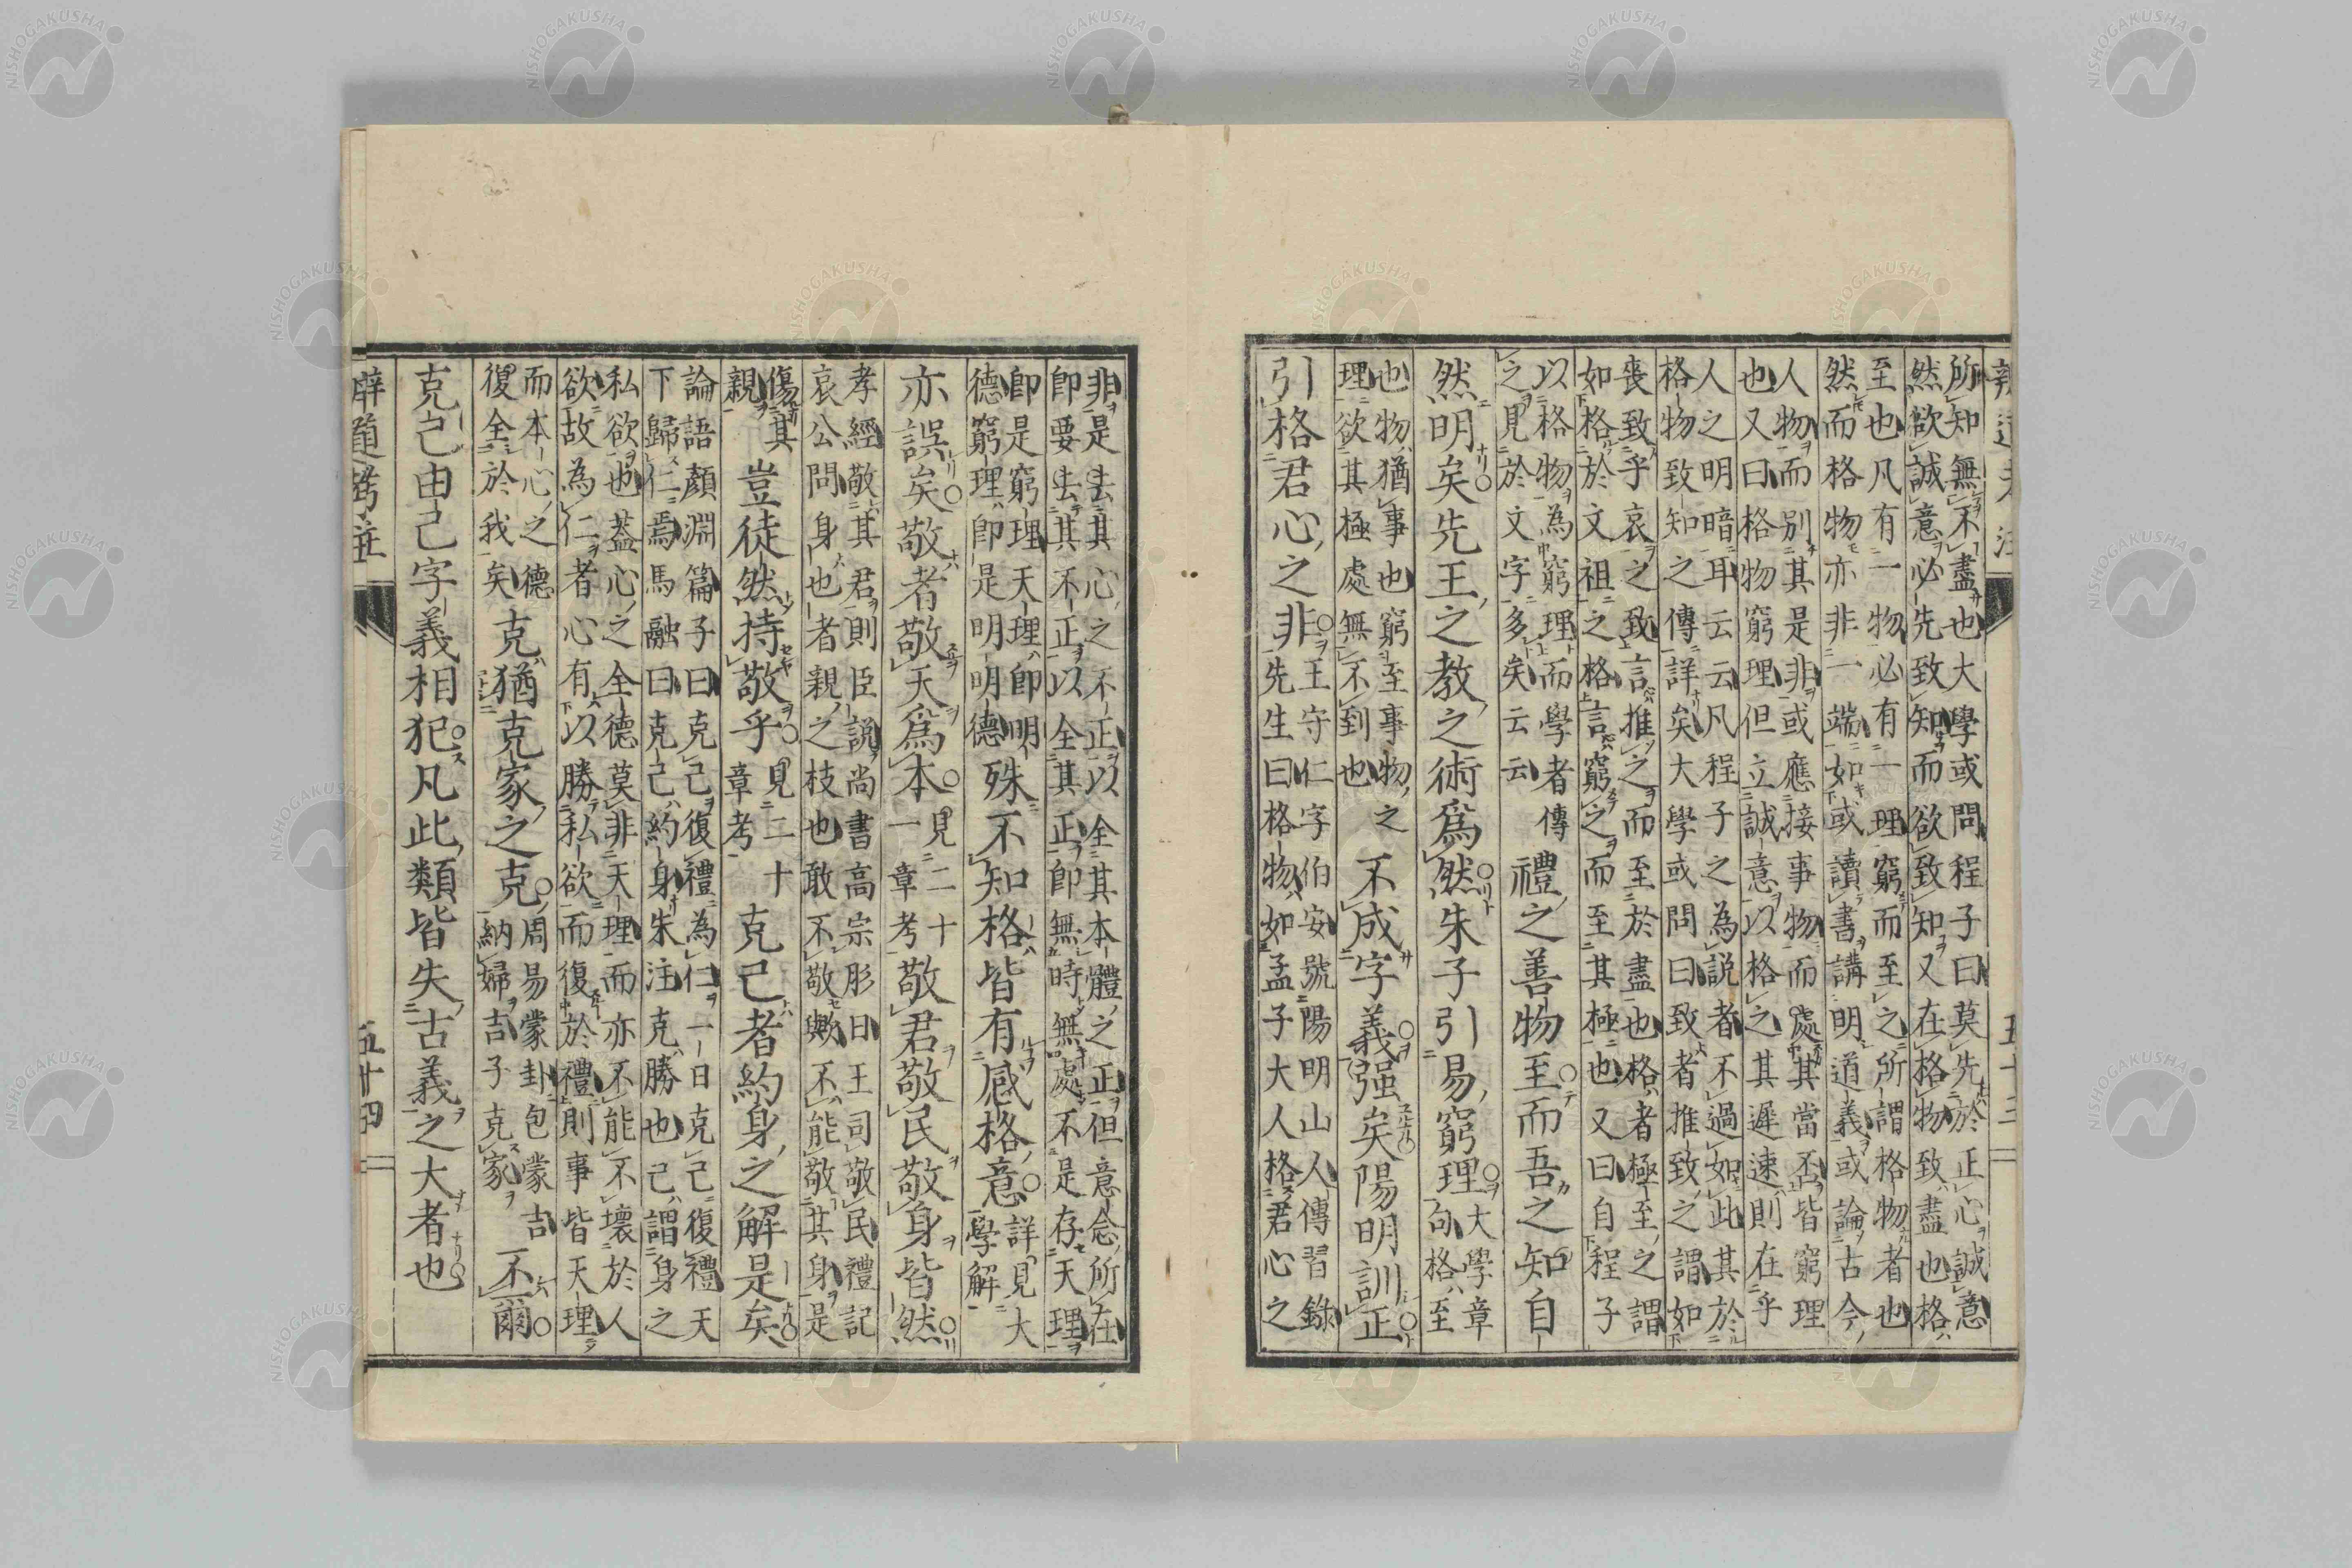 所知無不盡也大學或問程子曰莫先於正心誠意
然欲誠意必先致知而欲致知又在格物致盡也格
至也凡有一物必有一理窮而至之所謂格物者也
然而格物亦非一端如或讀書講明道義或論古今
人物而別其是非或應接事物而處其當否皆窮理
也又曰格物窮理但立誠意以格之其遲速則在乎
人之明暗耳云云凡程子之為說者不過如此其於
格物致知之傳詳矣大學或問曰致者推致之謂如
喪致乎哀之致言推之而至於盡也格者極至之謂
如格於文祖之格言窮之而至其極也又曰自程子
以格物為窮理而學者傳
之見於文字多矣云云
禮之善物至而吾之知自
然明矣先王之教之術爲然朱子引易窮理
大學章
句格至
也物猶事也窮至事物之
理欲其極處無不到也
不成字義强矣陽明訓正
引格君心之非
王守仁字伯安號陽明山人傳習錄
先生曰格物如孟子大人格君心之
非是去其心之不正以全其本體之正但意念所在
即要去其不正以全其正即無時無處不是存天理
即是窮理天理即明
德窮理即是明明德
殊不知格皆有感格意
詳見大
學解
亦誤矣敬者敬天爲本
見二十
一章考
敬君敬民敬身皆然
孝經敬其君則臣說尚書高宗肜日王司敬民禮記
哀公問身也者親之枝也敢不敬與不能敬其身是
傷其
親
豈徒然持敬乎
見二十
章考
克己者約身之解是矣
論語顏淵篇子曰克己復禮為仁一日克己復禮天
下歸仁焉馬融曰克己約身朱注克勝也己謂身之
私欲也蓋心之全德莫非天理而亦不能不壞於人
欲故為仁者心有以勝私欲而復於禮則事皆天理
而本心之德
復全於我矣
克猶克家之克
周易蒙卦包蒙吉
納婦吉子克家
不爾
克己由己字義相犯凡此類皆失古義之大者也
辨道考注
五十四